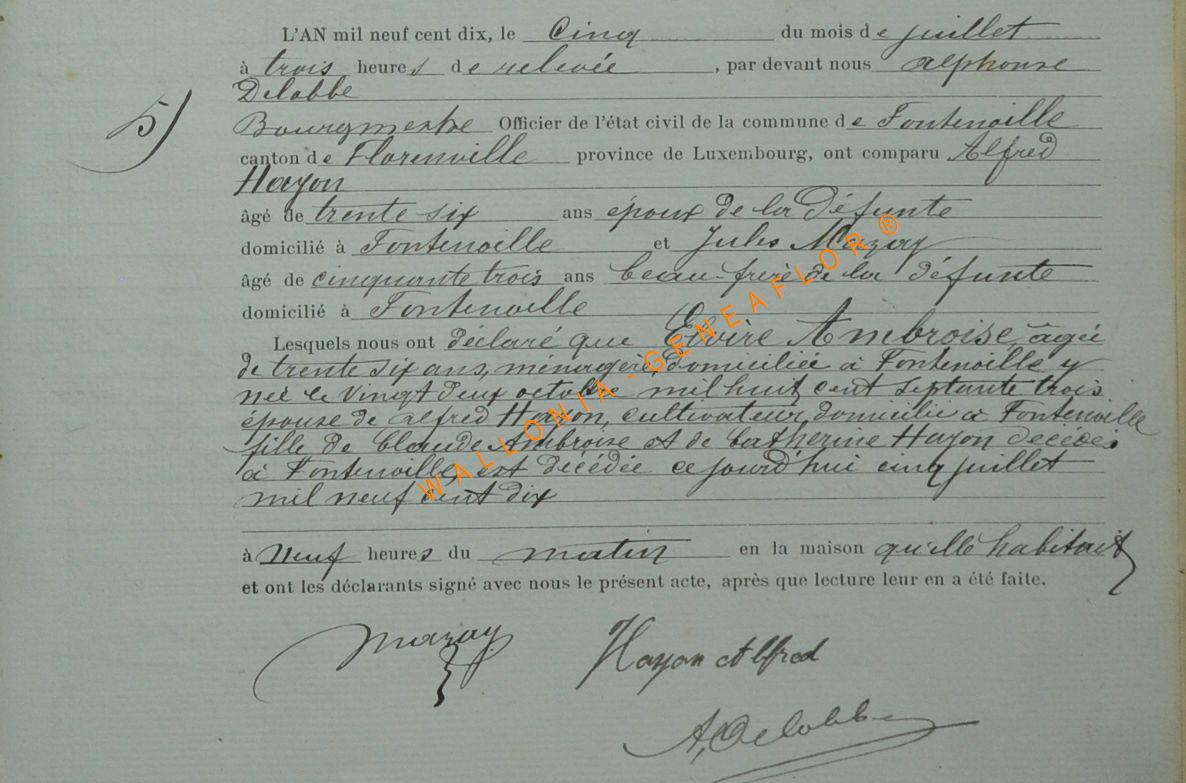 L'AN mil neuf cent dix, le Cinq du mois de juillet
à trois heures de relevée, par devant nous Alphonse
Delobbe
5)
Bourgmestre Officier de l'état civil de la commune de Fontenoille
canton de Florenville province de Luxembourg, ont comparu Alfred
Hayon
âgé de trente six ans époux de la défunte
domicilié à Fontenoille et Jules Mazay
âgé de cinquante trois ans beau-frère de la défunte
domicilié à Fontenoille
Lesquels nous ont déclaré que Elvire Ambroise, âgée
de trente six ans, ménagère, domiciliée à Fontenoille y
née le vingt deux octobre mil huit cent septante trois
épouse de Alfred Hayon, cultivateur, domicilié à Fontenoille
fille de Claude Ambroise et de Catherine Hayon décédés
à Fontenoille, est décédée ce jourd'hui cinq juillet
mil neuf cent dix
à neuf heures du matin en la maison qu'elle habitait
et ont les déclarants signé avec nous le présent acte, après que lecture leur en a été faite.
Mazay
Hayon Alfred
A, Delobbe
WALLONIA-GENEAFLOR ®